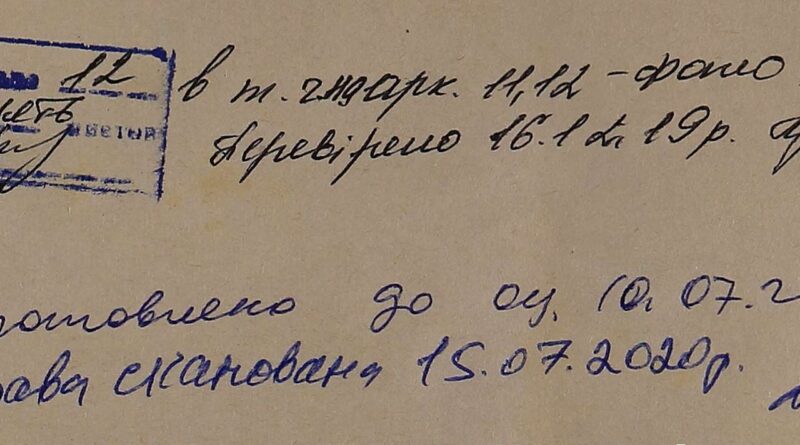 12 в т. ч. арк. 11,12 - фото
Перевірено 16.12.19р.
отовлено до оц. 10.07.2
рава сканована 15.07.2020р.